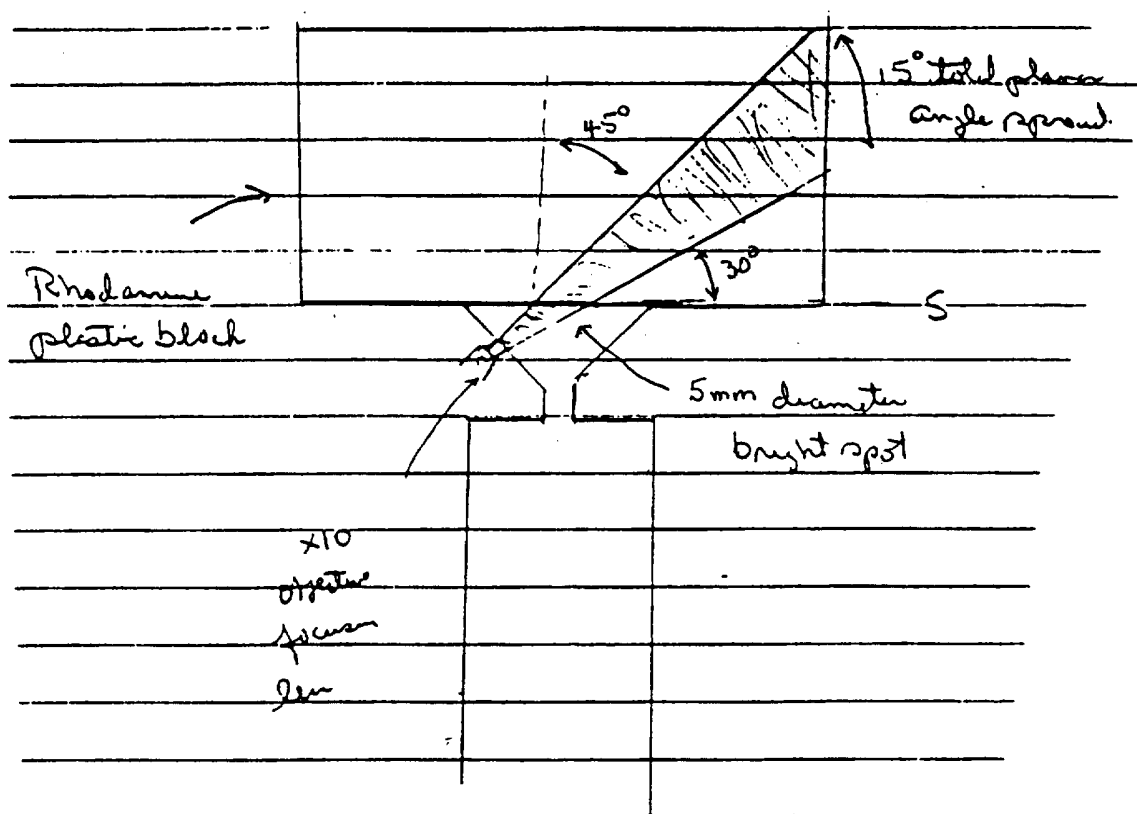 45°
15° total plane
angle spread
30°
Rhodamine
plastic block
S
5mm diameter
bright spot
x10
objective
focuser
len